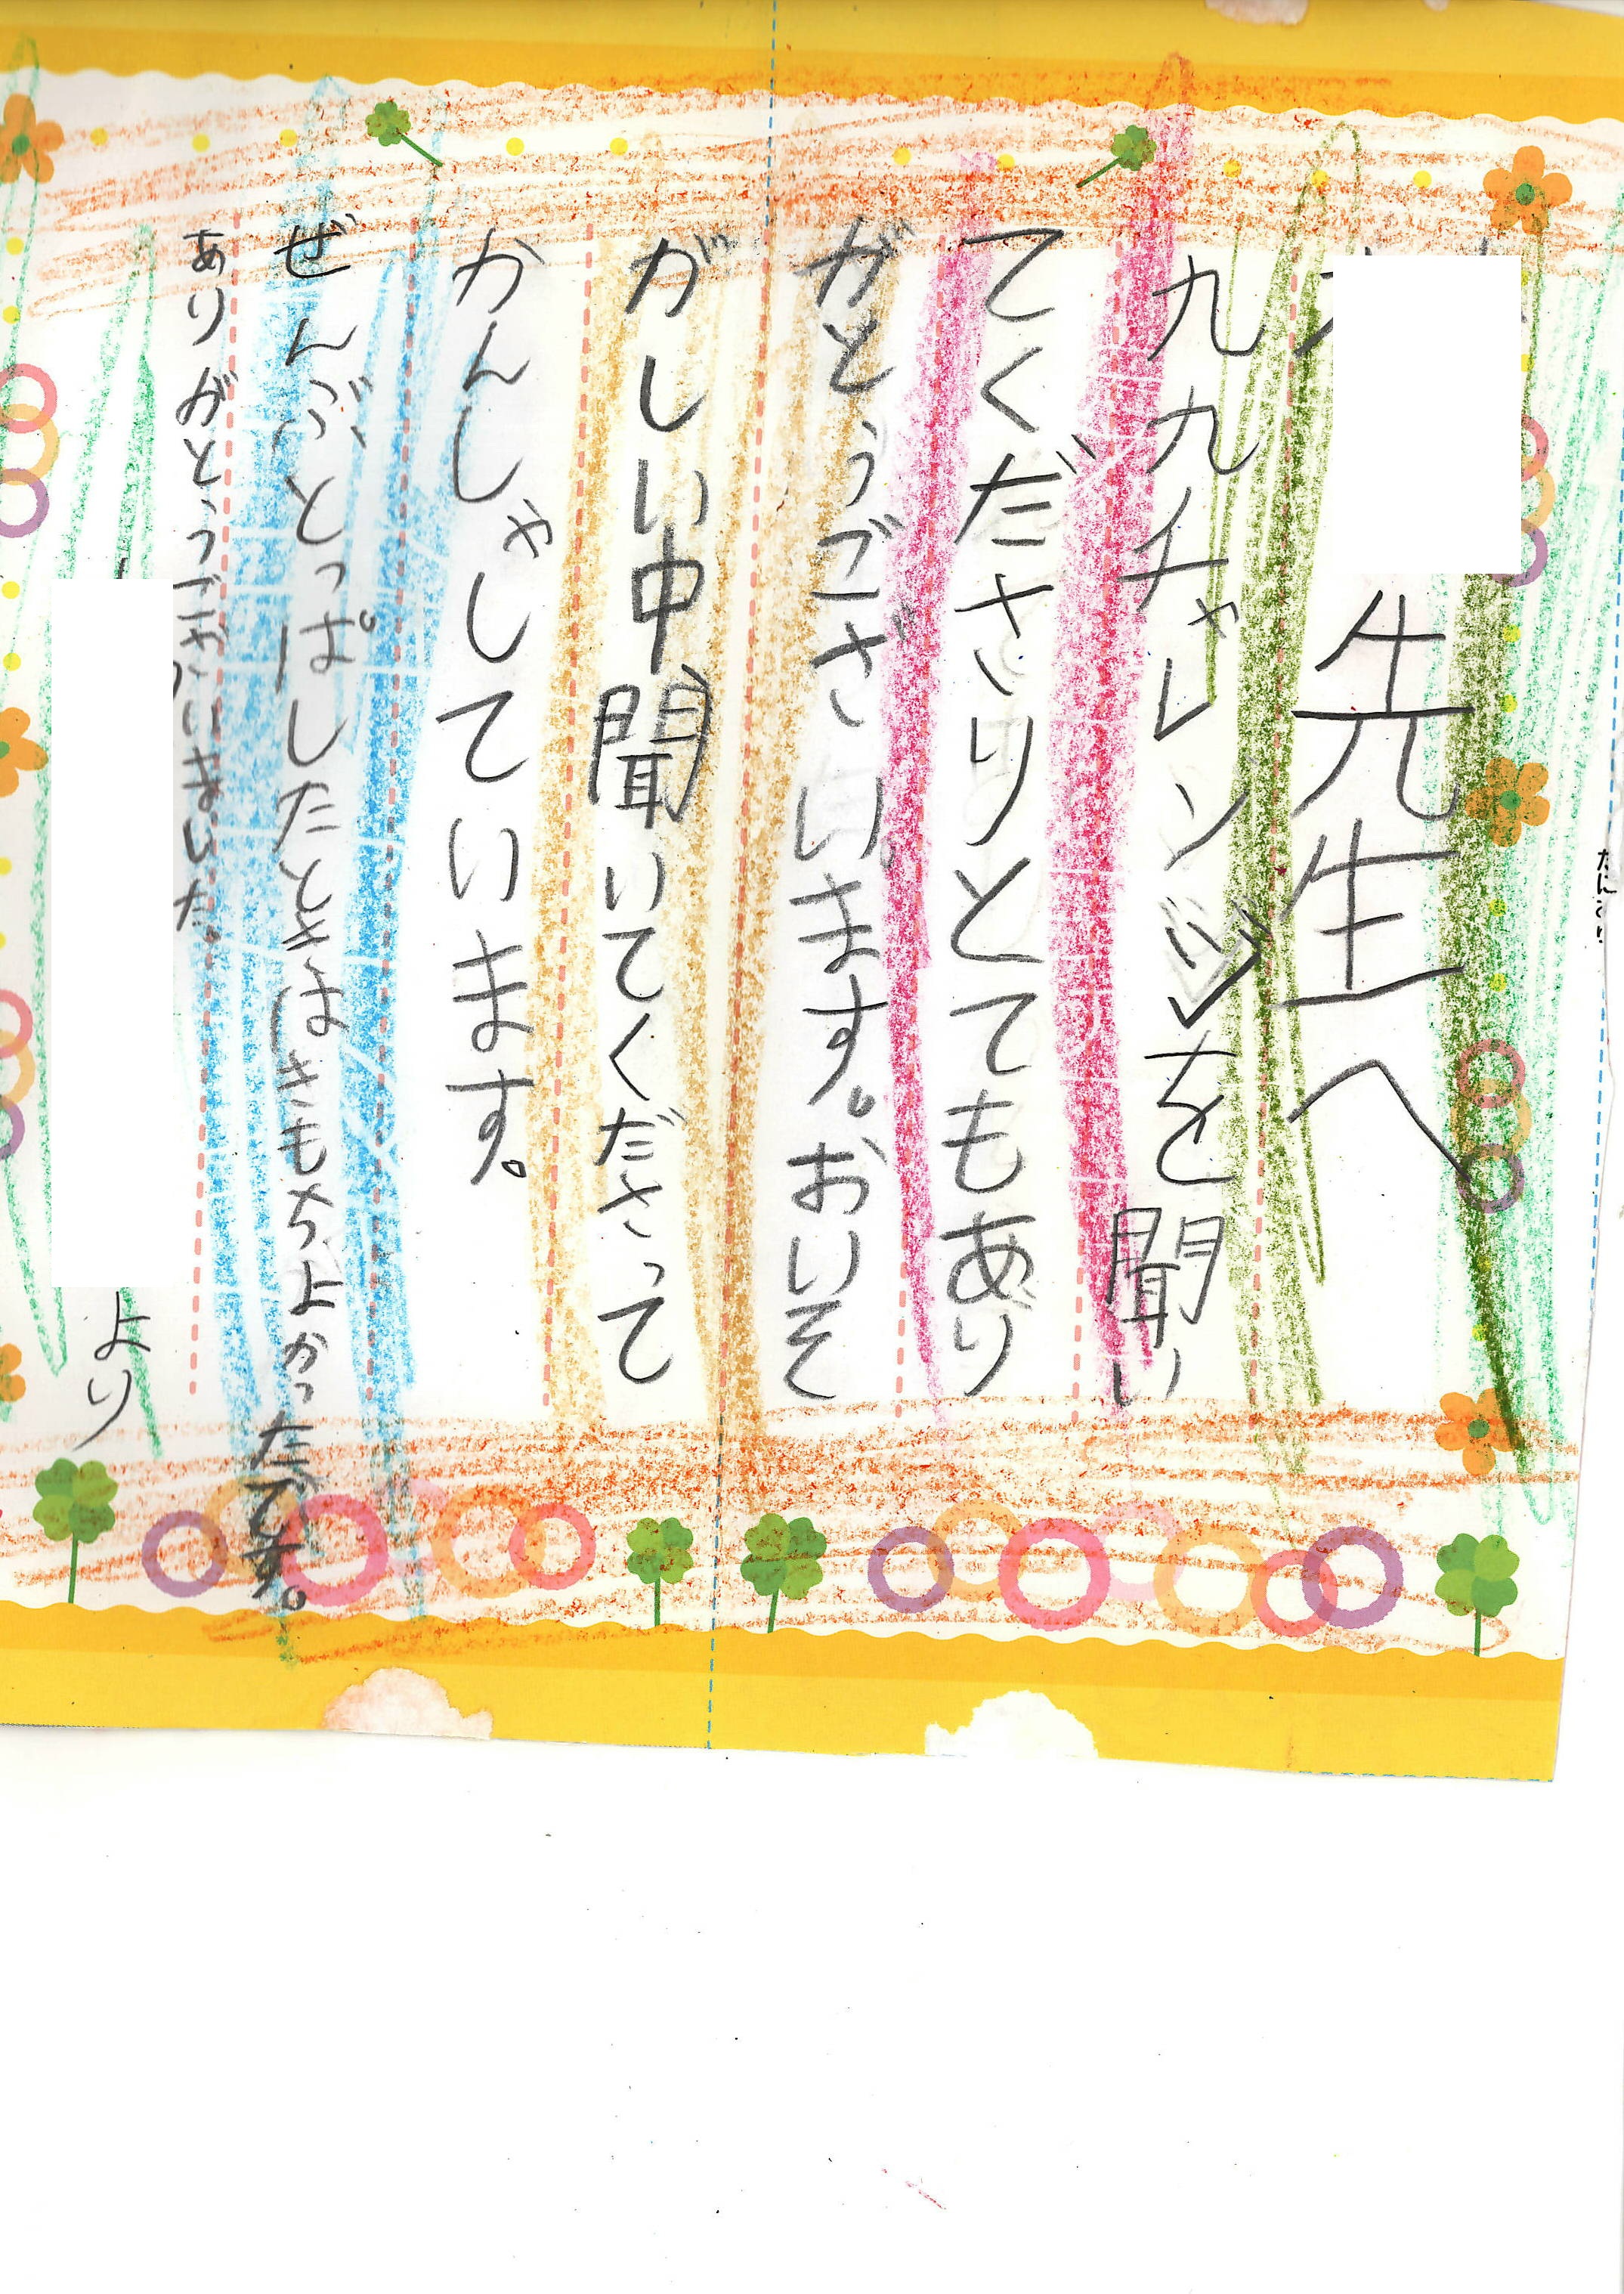 先生へ
九九チャレンジを聞い
てくださりとてもあり
がとうございます。おいそ
がしい中、聞いてくださって
かんしゃしています。
ぜんぶとっぱしたときはきもちよかったです。
ありがとうございました。
より